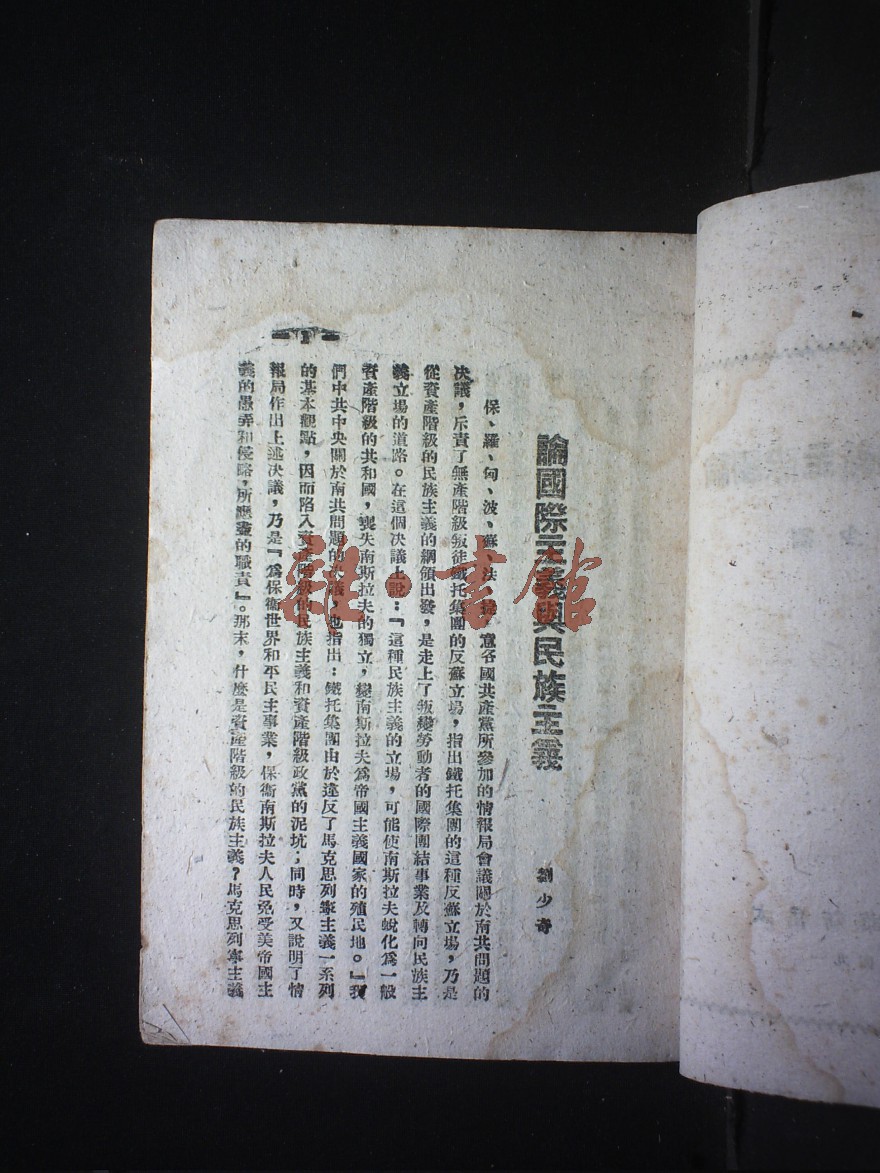 論國際主義與民族主義
劉少奇
保、羅、匈、波、蘇、法、捷、意各國共產黨所參加的情報局會議關於南共問題的
决議，斥責了無產階級叛徒鐵托集團的反蘇立場，指出鐵托集團的這種反蘇立場，乃是
從資產階級的民族主義的綱領出發，是走上了叛變勞動者的國際團結事業及轉向民族主
義立場的道路。在這個决議上說：『這種民族主義的立場，可能使南斯拉夫蛻化爲一般
資產階級的共和國，喪失南斯拉夫的獨立，變南斯拉夫爲帝國主義國家的殖民地。』我
們中共中央關於南共問題的决議，也指出：鐵托集團由於違反了馬克思列寧主義一系列
的基本觀點，因而陷入資產階級的民族主義和資產階級政黨的泥坑；同時，又說明了情
報局作出上述决議，乃是『爲保衛世界和平民主事業，保衛南斯拉夫人民免受美帝國主
義的愚弄和侵略，所應盡的職責』。那末，什麼是資產階級的民族主義？馬克思列寧主義
1
雜·書館